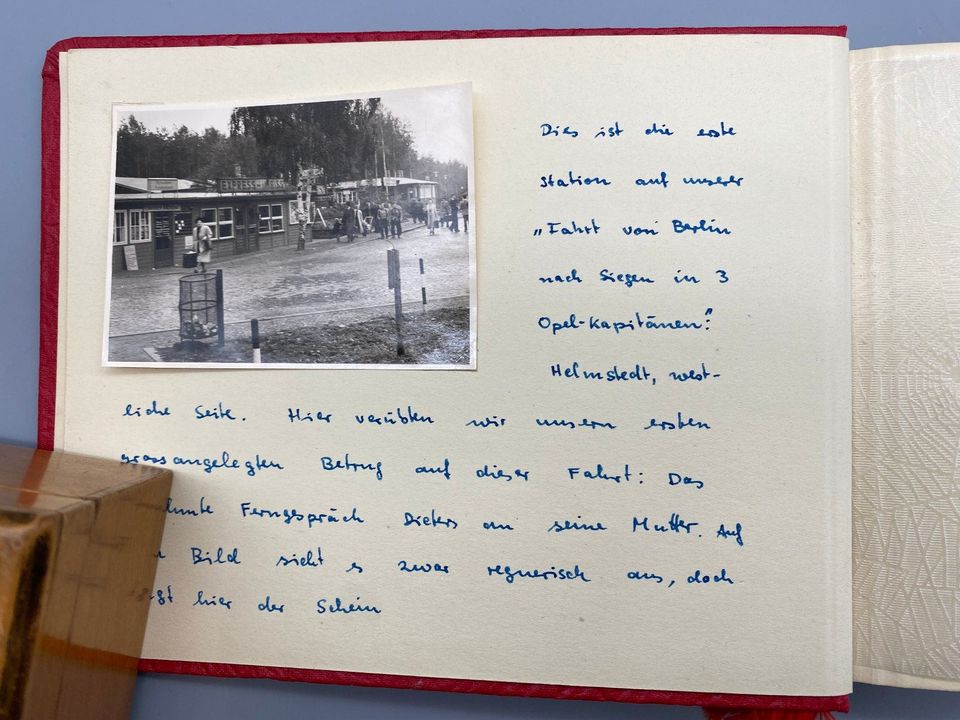 EXPRESS
Dies ist die erste
Station auf unserer
„Fahrt von Berlin
nach Siegen in 3
Opel-Kapitänen."
Helmstedt, west-
liche Seite. Hier verübten wir unsern ersten
grossangelegten Betrug auf dieser Fahrt: Das
Ferngespräch Dieters an seine Mutter. Auf
Bild sieht es zwar regnerisch aus, doch
hier der Schein